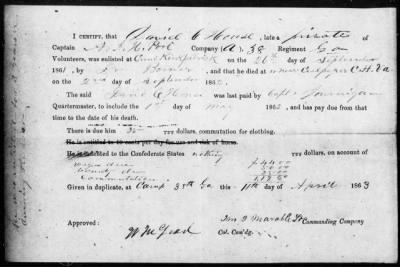 I CERTIFY, that David C House, late a private of
Captain Company (A) 38 Regiment Ga
Volunteers, was enlisted at Camp Kirkpatrick on the 26th day of September
1861, by and that he died at near Culpeper C. H. Va
on the 2nd day of September 1862.
The said David C House was last paid by Capt
Quartermaster, to include the 1st day of May 1862, and has pay due from that
time to the date of his death.
There is due him dollars, commutation for clothing.
He is entitled to 40 cents per day for use and risk of horse.
He is indebted to the Confederate States nothing dollars, on account of
Wages due 44.00
Bounty due
Commutation
Given in duplicate, at Camp 38th Ga this 11th day of April 1863
Jno J Marable Lt Commanding Company
Approved:
Col. Com'dg.